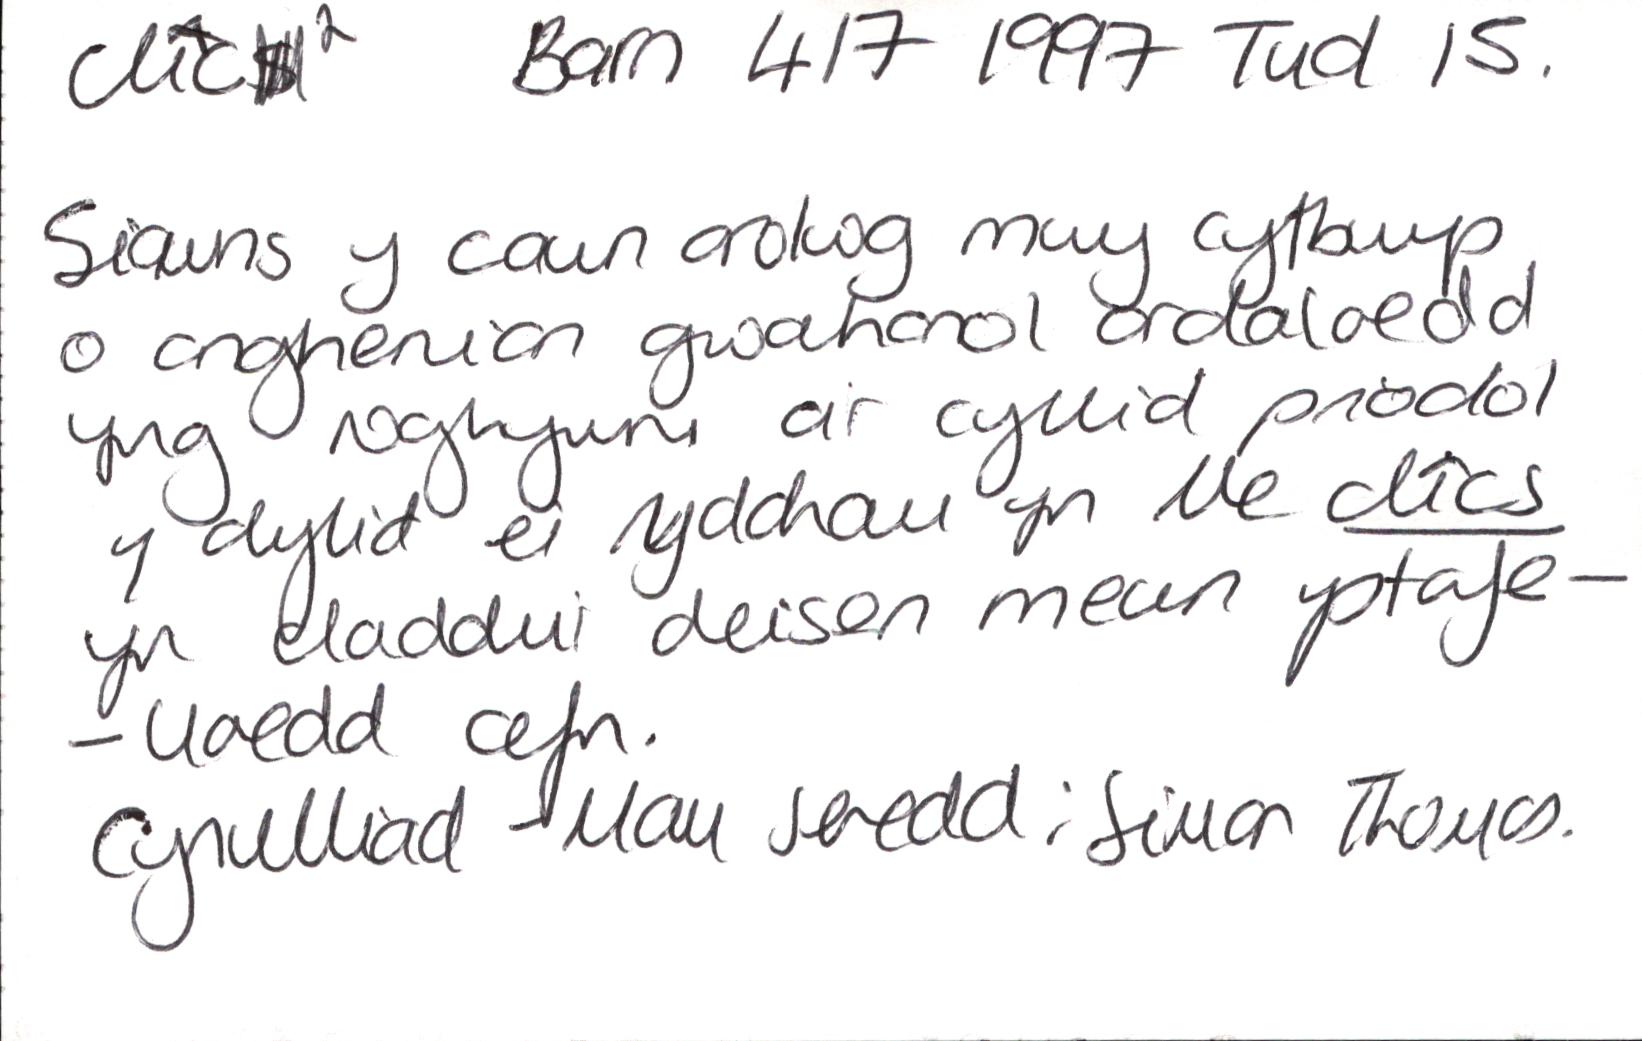 clîc² Barn 417 1997 Tud 15.
Siawns y cawn arolwg mwy cytbwys
o anghenion gwahanol ardaloedd
yng Nghymru a'r cyllid priodol
y dylid ei ryddhau yn lle clîcs
yn claddu'i deisen mewn ystafe-
-lloedd cefn.
Cynulliad - Mau Senedd: Simon Thomas.